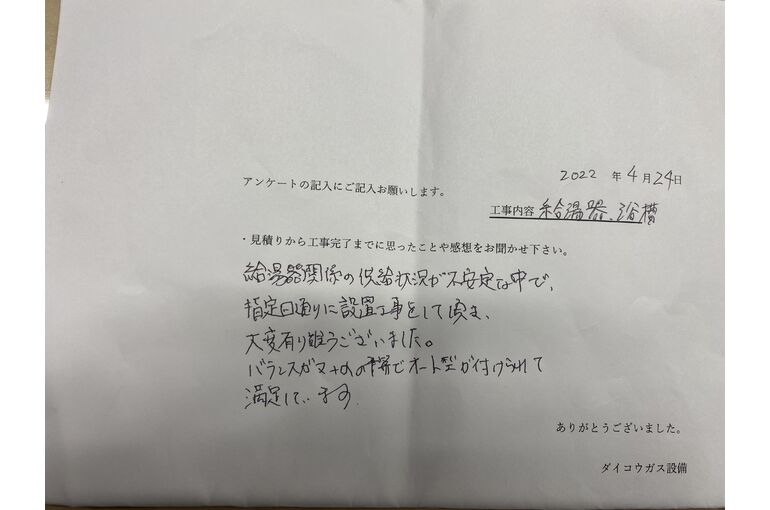 2022 年 4月24日
アンケートの記入にご記入お願いします。
工事内容 給湯器、浴槽
・見積りから工事完了までに思ったことや感想をお聞かせ下さい。
給湯器関係の供給状況が不安定な中で、
指定日通りに設置工事をして頂き、
大変有り難うございました。
バランスガマ+αの でオート型が付けられて
満足しています。
ありがとうございました。
ダイコウガス設備